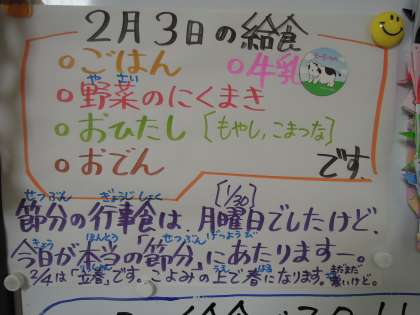 2月3日の給食
○ごはん ○牛乳
○野菜のにくまき
○おひたし [もやし,こまつな]
○おでん です。
[1/30]
節分の行事食は、月曜日でしたけど、
今日が本当の「節分」にあたりますー。
2/4は「立春」です。こよみの上で春になります。まだまだ寒いけど。